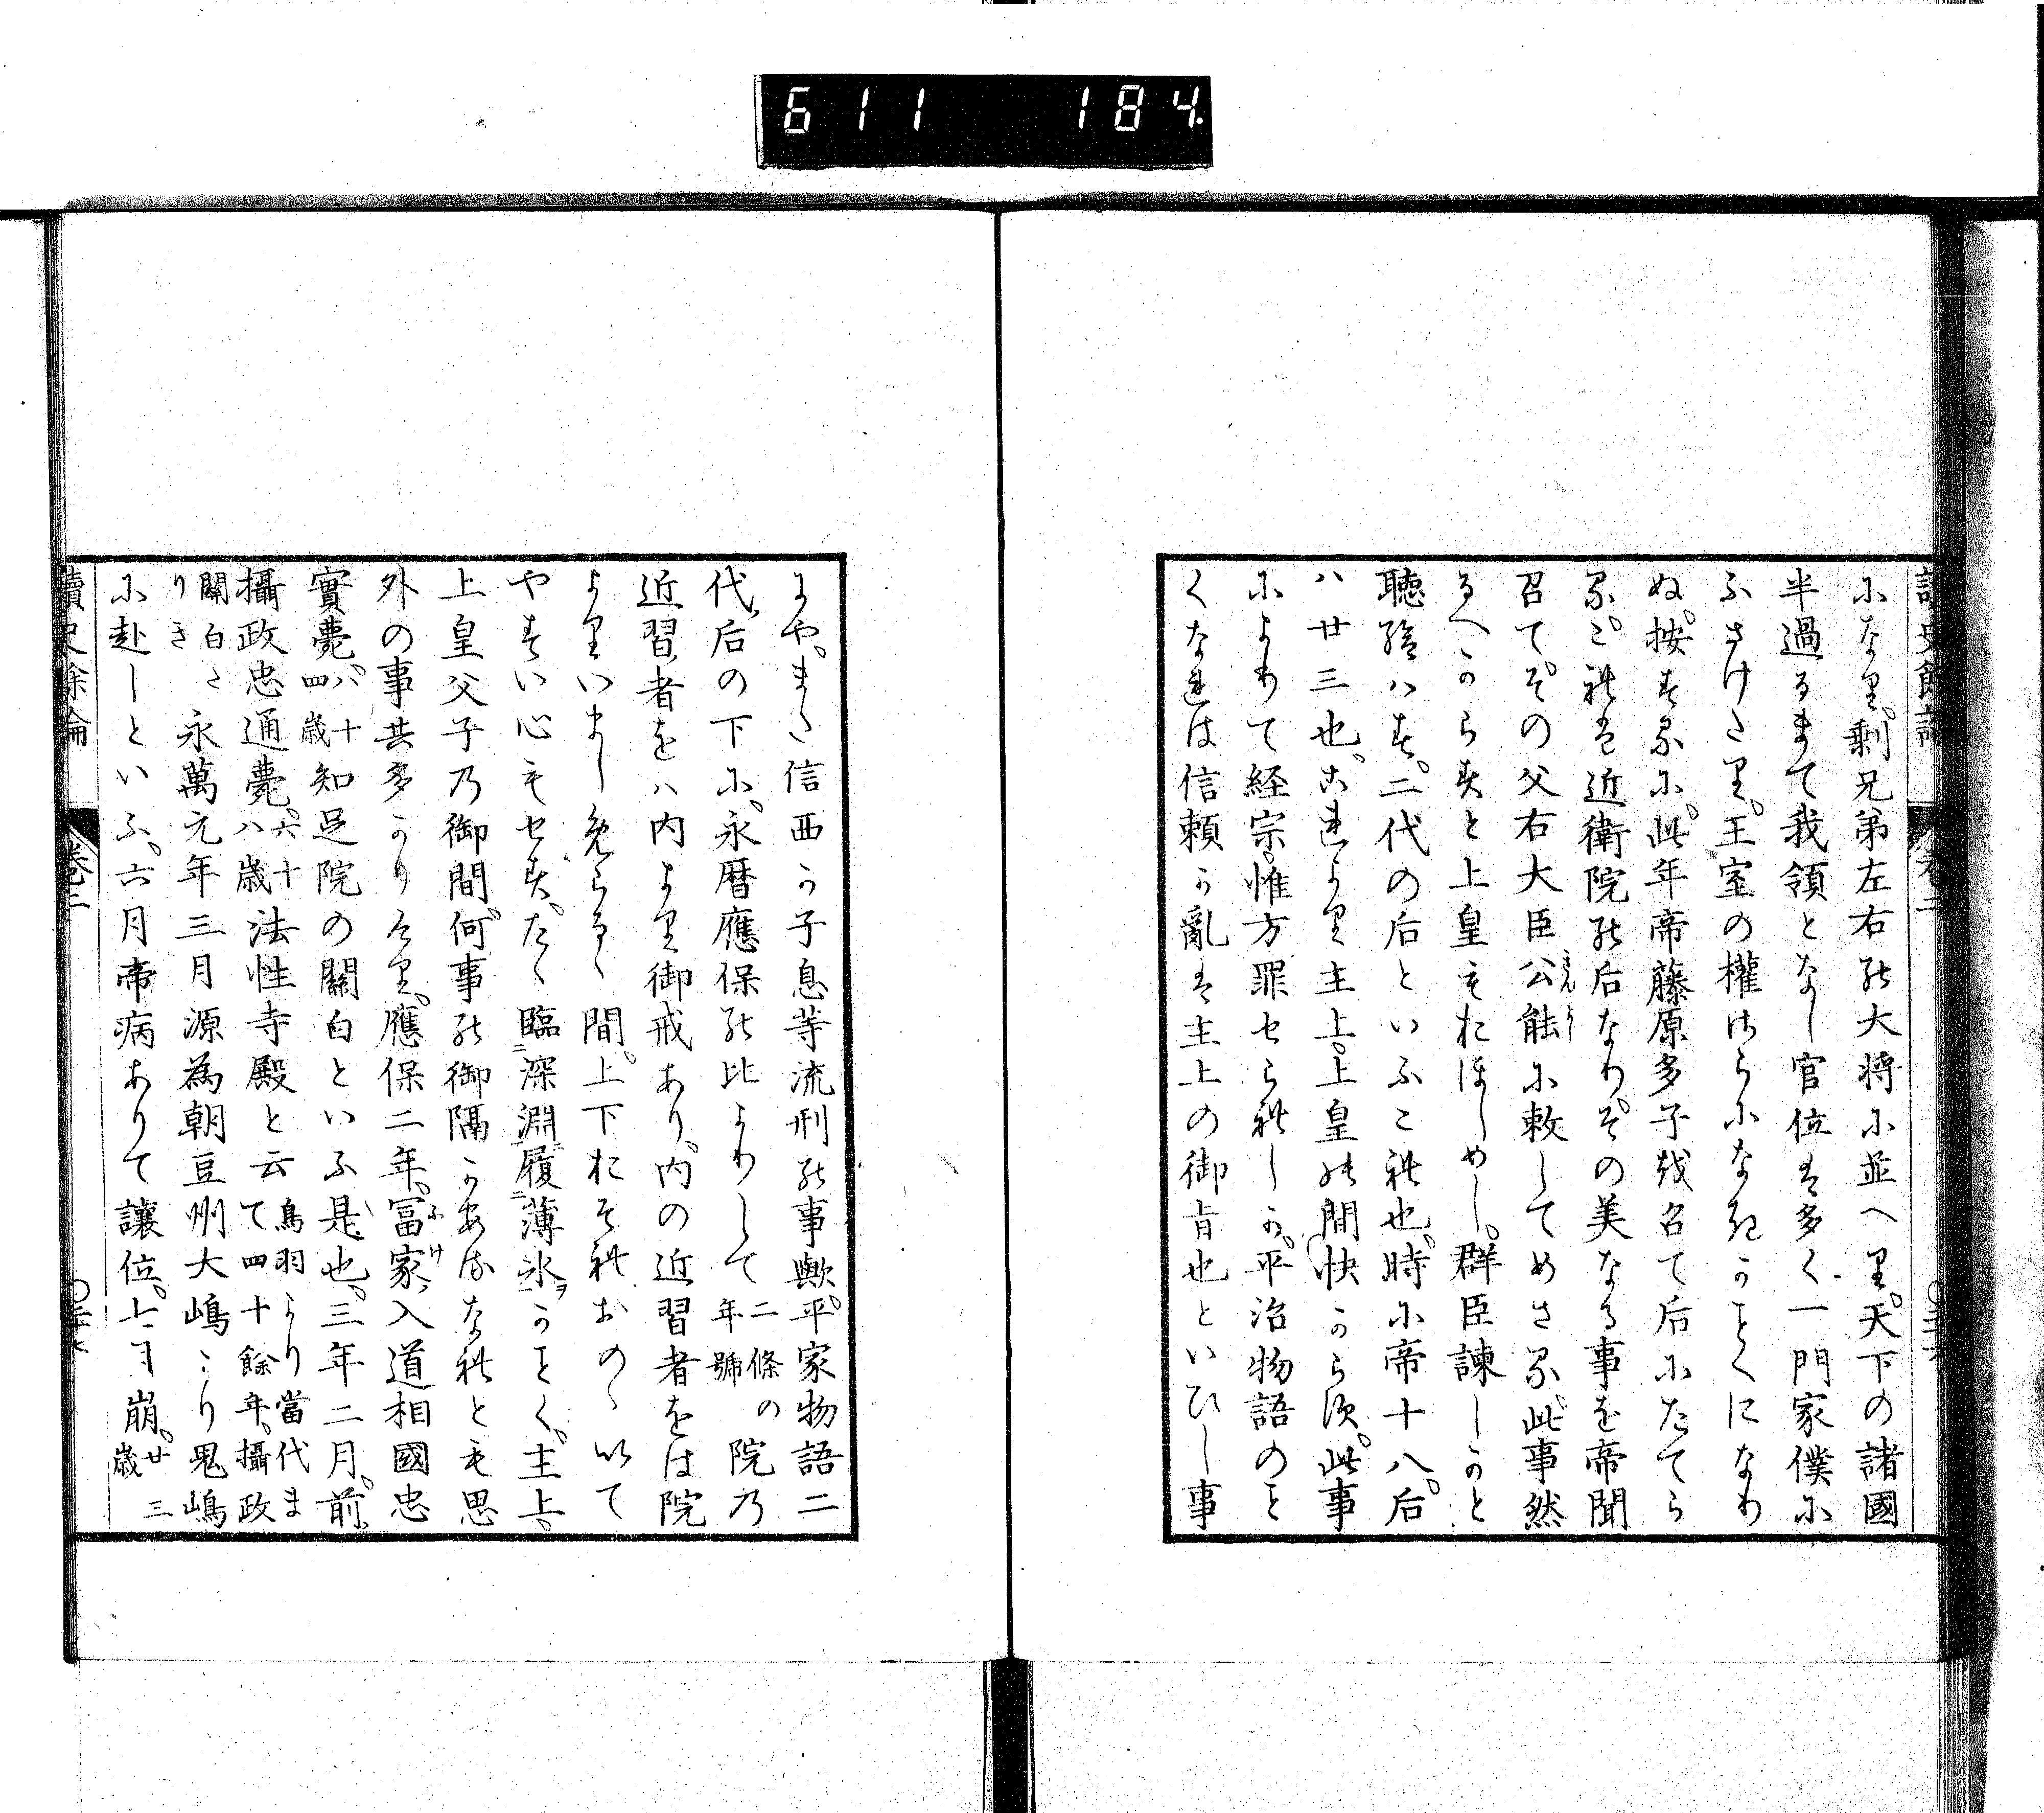 611 184
讀史餘論 卷二
になり。剰兄弟左右の大将に並へり。天下の諸國
半過るまて我領となし官位は多く一門家僕に
ふさけたり。王室の權はらになきかことくになり
ぬ。按するに。此年帝藤原多子を召て后にたてら
る。これは近衛院の后なり。その美なる事を帝聞
召てその父右大臣公能に敕してめさる。此事然
るへからすと上皇もおほしめし。群臣諫しかと
聽給はす。二代の后といふこれ也。時に帝十八。后
ハ廿三也。これより主上。上皇の間快からす。此事
によりて経宗。惟方罪せられしか。平治物語のこと
くなれは信頼か亂は主上の御旨也といひし事
にや。また信西か子息等流刑の事歟。平家物語二
代后の下に。永暦應保の比よりして二條の年號院乃
近習者をハ内より御戒あり。内の近習者をは院
よりいましめらるゝ間。上下おそれおのゝいて
やすい心もせす。たゝ臨深淵履薄氷かことく。主上。
上皇父子乃御間。何事の御隔かあるなれとも思
外の事共多かりけり。應保二年。冨家入道相國忠
實薨。八十四歳知足院の關白といふ是也。三年二月。前
攝政忠通薨。六十八歳法性寺殿と云鳥羽より當代まて四十餘年。攝政
關白たりき永萬元年三月源為朝豆州大嶋より鬼嶋
に赴しといふ。六月帝病ありて讓位。七月崩。廿三歳
讀史餘論 卷二